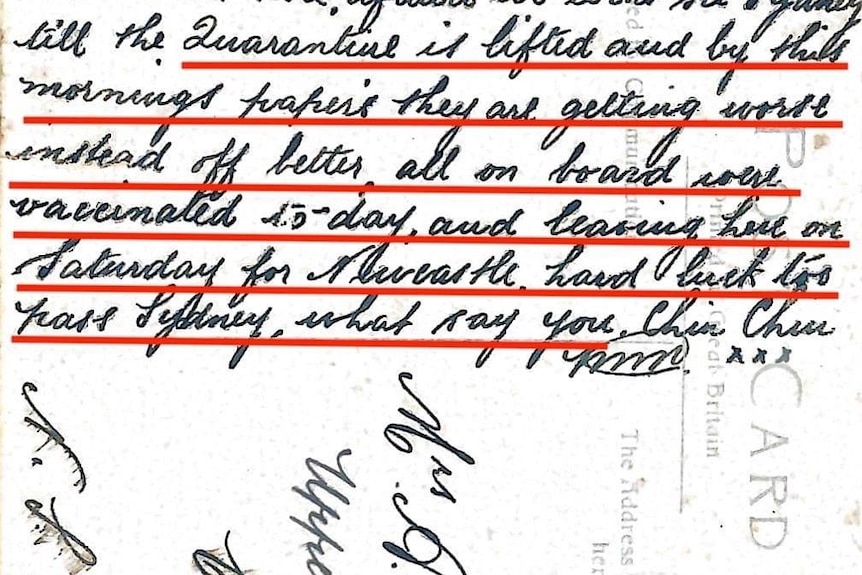 till the Quarantine is lifted and by this
mornings papers they are getting worse
instead off better, all on board were
vaccinated to-day, and leaving here on
Saturday for Newcastle. hard luck too
pass Sydney, what say you. Chin Chin
xxx
Mrs
Uppe
N. S.
POST CARD
Printed in Great Britain
The Address
her